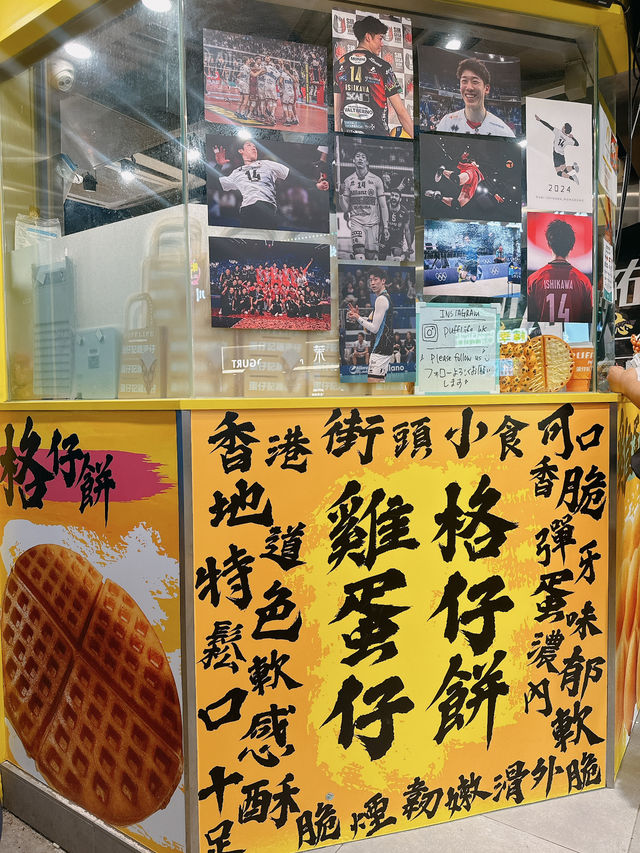 14
ISHIKAWA
14
14
14
2024
ISHIKAWA
14
INSTAGRAM
pufflife_hk
Please follow us
フォローよろしくお願い
します
格仔餅
香港街頭小食可口
香脆
彈牙
蛋味
濃郁
內軟
外脆
地道
特色
鬆軟
口感
十足
酥脆煙韌嫩滑
雞蛋仔
格仔餅